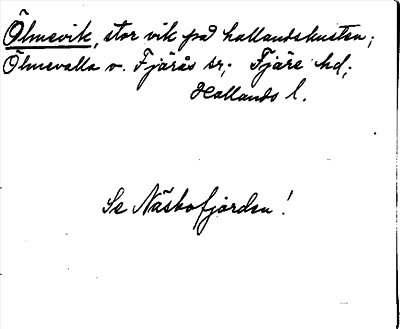 Ölmevik, stor vik på hallandskusten;
Ölmevalla o. Fjärås sr; Fjäre hd;
Hallands l.
Se Näsbofjorden!